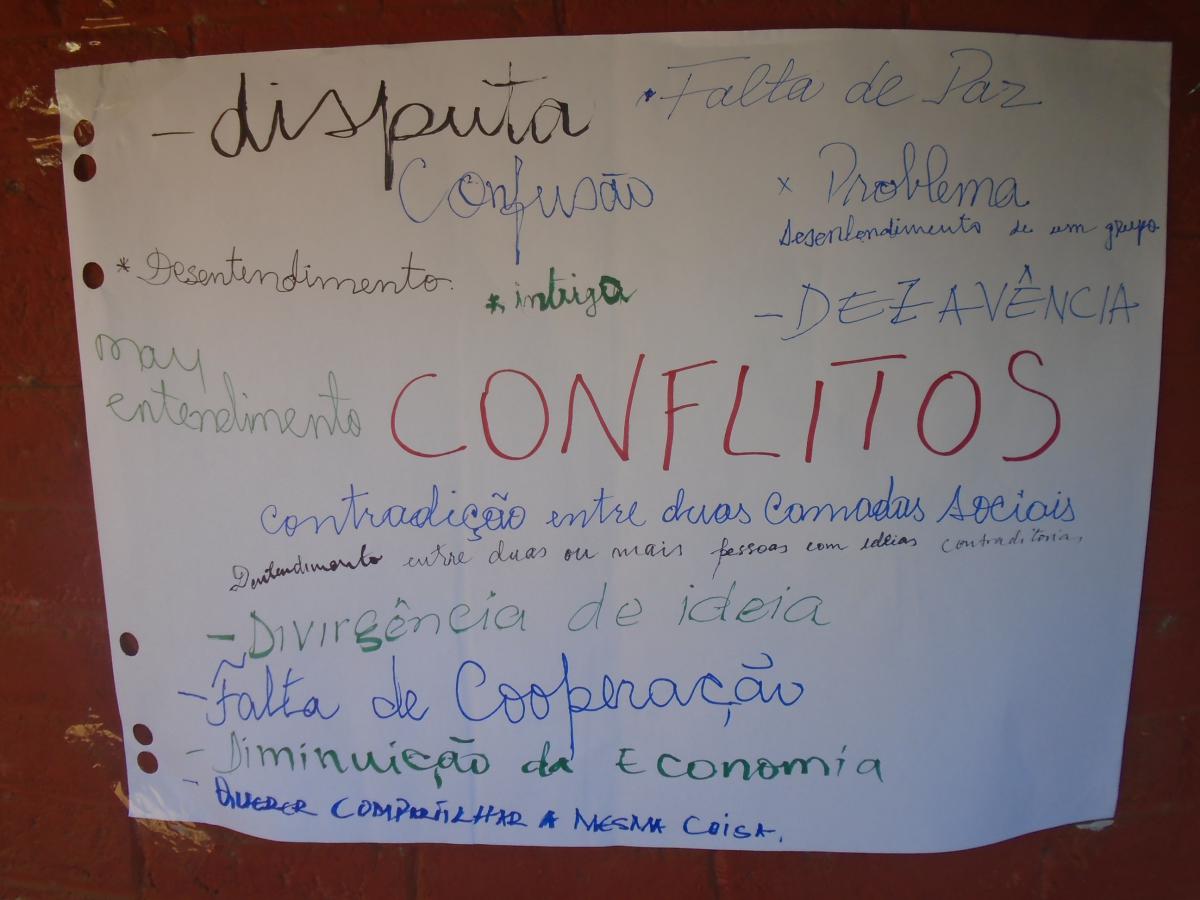 - disputa
• Falta de Paz
Confusão
x Problema
Desentendimento de um grupo
* Desentendimento.
* intriga
- DEZAVÊNCIA
may
entendimento
CONFLITOS
contradição entre duas Camadas Sociais
entre duas ou mais pessoas com ideias contraditorias
- Divirgência de ideia
- Falta de Cooperação
- Diminuição da Economia
- QUERER COMPARTILHAR A MESMA COISA.